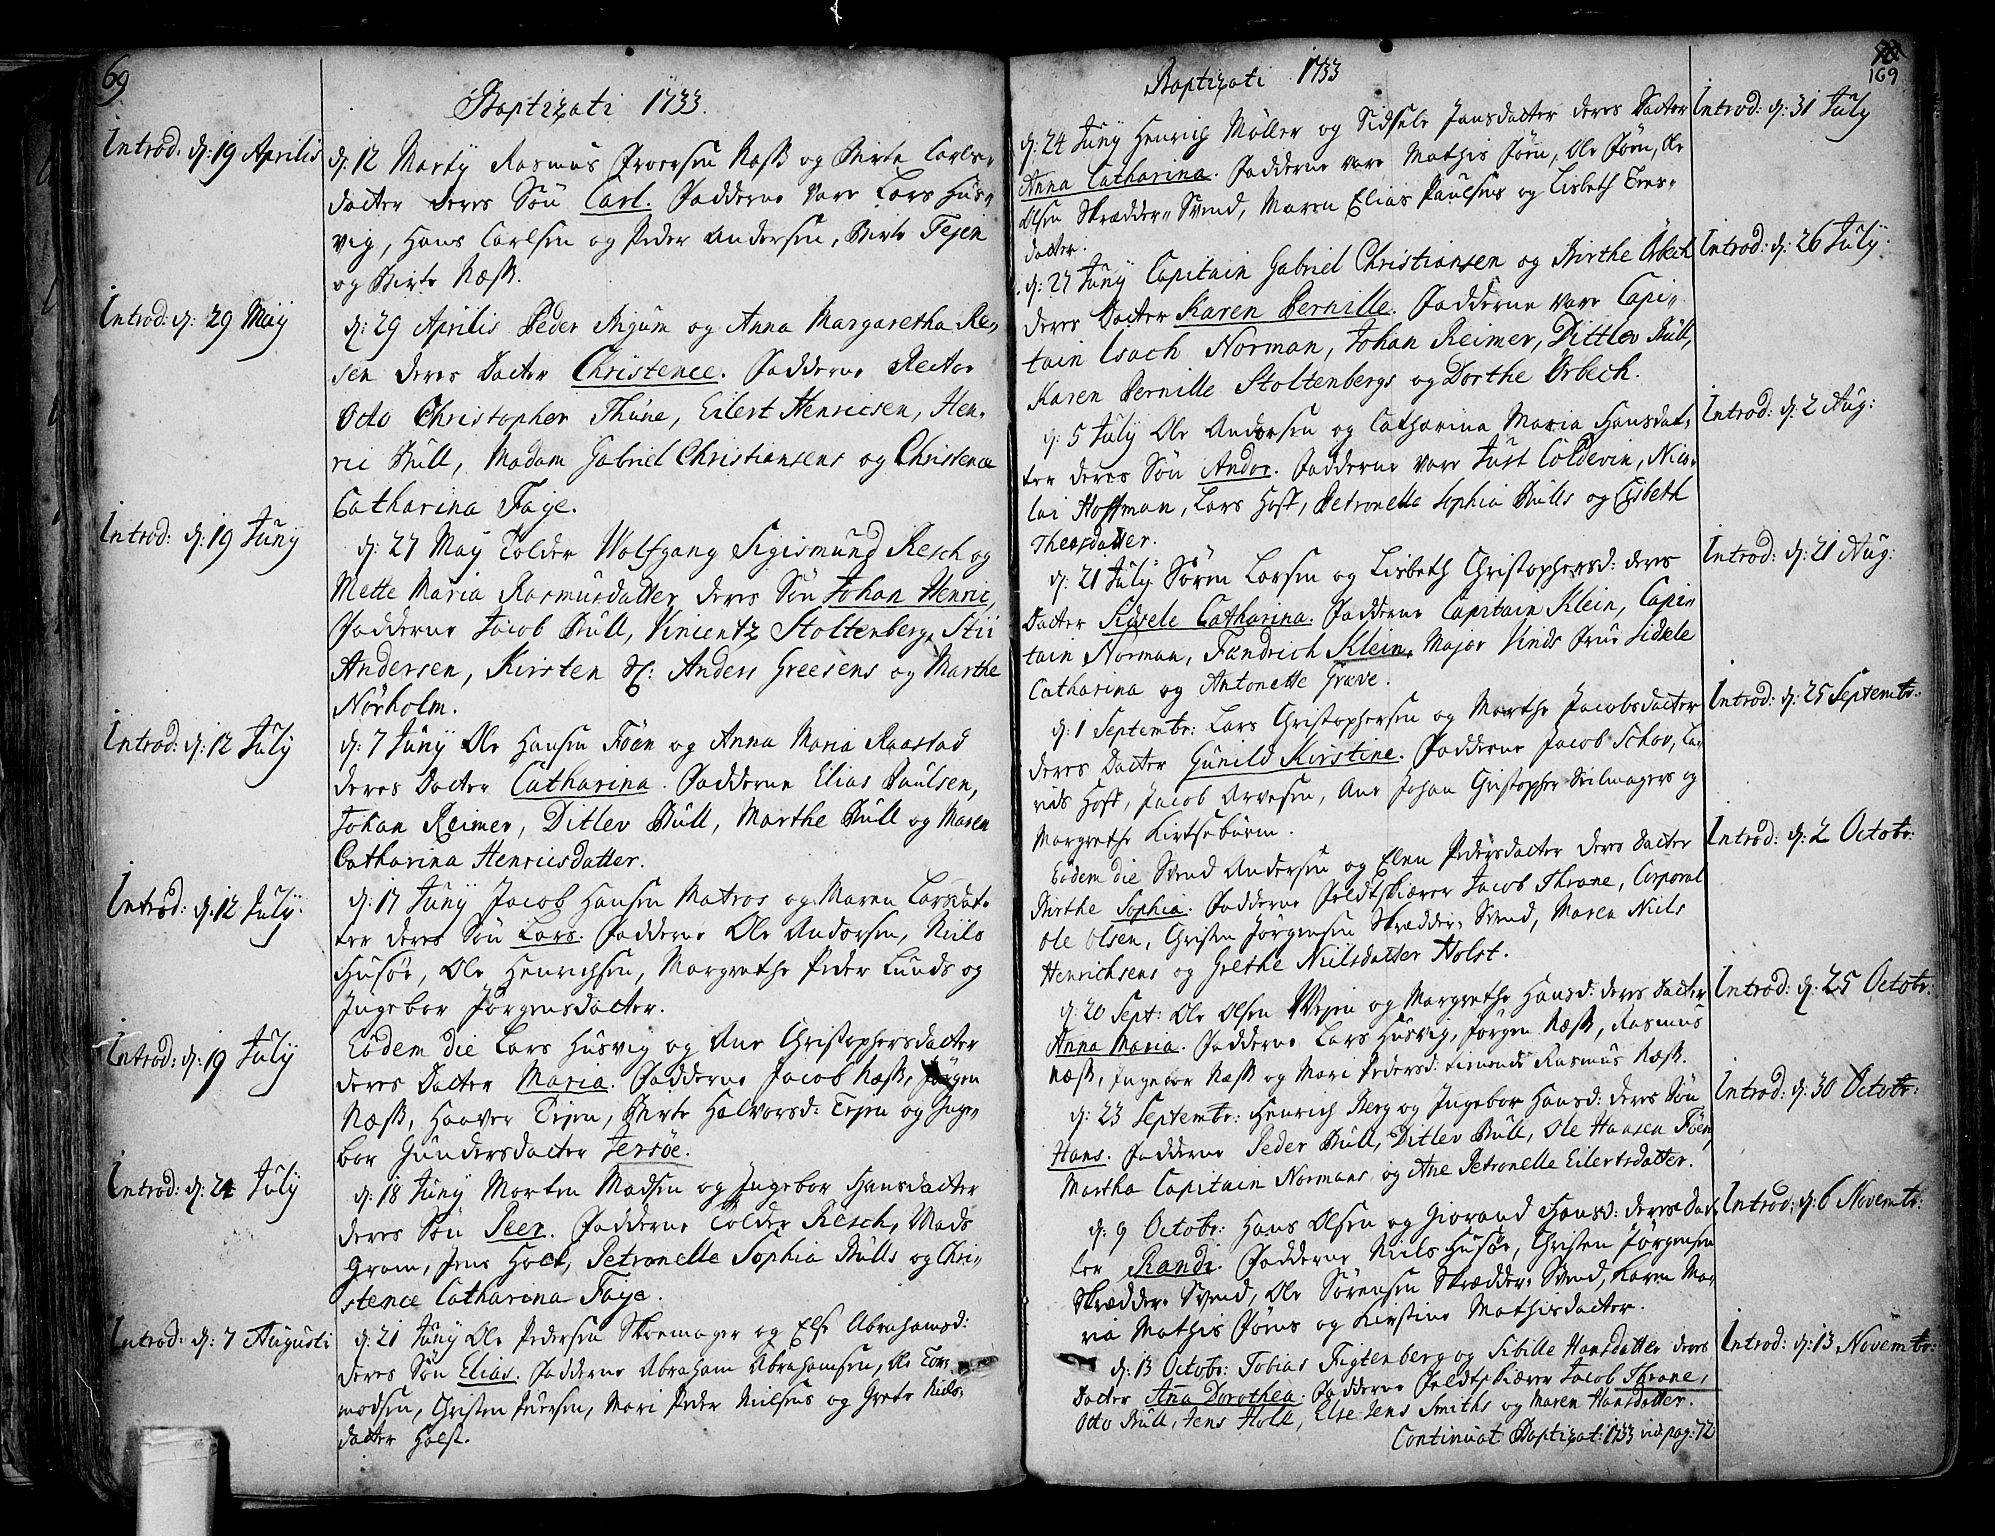 69
Baptizati 1733.
Introd. d: 19 Aprilis
d: 12 Marty Rasmus Iversen Næss og Birte Carls-
dacter deres Søn Carl. Fadderne vare Lars Hus-
vig, Hans Carlsen og Peder Andersen, Birte Tejen
og Birte Næss.
Introd: d: 29 Maÿ
d: 29 Aprilis Peder Bigum og Anna Margaretha Re-
sen deres Dacter Christence. Fadderne Rector
Otto Christopher Thune, Eilert Henricsen, Hen-
ric Bull, Madam Gabriel Christiansens og Christence
Catharina Faÿe.
Introd: d: 19 Junÿ
d: 27 Maÿ Tolder Wolfgang Sigismund Resch og
Mette Maria Rasmusdatter deres Søn Johan Henric,
Fadderne Jacob Bull, Vincentz Stoltenberg, Stii
Andersen, Kirsten Anders Greesens og Marthe
Nörholm.
Introd: d: 12 Julÿ
d: 7 Junÿ Ole Hansen Föen og Anna Maria Raastad
deres Dacter Catharina. Fadderne Elias Paulsen,
Johan Reimer, Ditlev Bull, Marthe Bull og Maren
Catharina Henricsdatter.
Introd: d: 12 Julÿ.
d: 17 Junÿ Jacob Hansen Matros og Maren Larsdat-
ter deres Søn Lars. Fadderne Ole Andersen, Niels
Husöe, Ole Henrichsen, Margrethe Peder Lunds og
Ingebor Jörgensdacter.
Introd: d: 19 Julÿ
Eodem die Lars Husvig og Ane Christophersdacter
deres Dacter Maria. Fadderne Jacob Næss, Jörgen
Næss, Haaver Tejen, Birte Halvorsd: Tejen og Inge-
bor Gundersdacter Jersöe.
Introd: d: 24 Julÿ
d: 18 Junÿ Morten Madsen og Ingebor Hansdacter
deres Søn Peer. Fadderne Tolder Resch, Mads
Gram, Jens Holt, Petronelle Sophia Bulls og Chri-
stence Catharina Faÿe.
Introd: d: 7 Augusti
d: 21 Junÿ Ole Pedersen Skoemager og Else Abrahamsd:
deres Søn Elias. Fadderne Abraham Abrahamsen, Ole Tor-
modsen, Christen Pedersen, Mari Peder Nielsens og Grete Niels-
dacter Holst.
169
Baptizati 1733
Introd: d: 31 Julÿ
d: 24 Junÿ Henrich Möller og Sidsele Jansdacter deres Dacter
Anna Catharina. Fadderne vare Mathis Jörn, Ole Jörn, Ole
Olsen Skrædder-Svend, Maren Elias Paulsens og Lisbeth Tres-
dacter.
Introd: d: 26 Julÿ.
d: 27 Junÿ Capitain Gabriel Christiansen og Birthe Örbech
deres Dacter Karen Pernille. Fadderne vare Capi-
tain Isach Norman, Johan Reimer, Dittlev Bull,
Karen Pernille Stoltenbergs og Dorthe Örbech.
Introd: d: 2 Aug:
d: 5 Julÿ Ole Andersen og Catharina Maria Hansdat-
ter deres Søn Andor. Fadderne vare Just Coldevin, Nico-
lai Hoffman, Lars Host, Petronelle Sophia Bulls og Lisbeth
Theosdatter.
Introd: d: 21 Aug:
d: 21 Julÿ Sören Larsen og Lisbeth Christophersd: deres
Dacter Sidsele Catharina. Fadderne Capitain Klein, Capi-
tain Norman, Fændrich Klein, Major Vinds Frue Sidsele
Catharina og Antonette Græve.
Introd: d: 25 Septembr:
d: 1 Septembr: Lars Christophersen og Marthe Jacobsdacter
deres Dacter Gunild Kirstine. Fadderne Jacob Schov, La-
rids Host, Jacob Arvesen, Ane Johan Christopher Seilmagers og
Margrethe
Introd: d: 2 Octobr:
Eodem die Svend Andersen og Elen Pedersdacter deres Dacter
Birthe Sophia. Fadderne Feldtskiærer Jacob Throne, Corporal
Ole Olsen, Christen Jörgensen Skrædder-Svend, Maren Niels
Henrichsens og Grethe Nielsdatter Holst.
Introd: d. 25 Octobr:
d: 20 Sept: Ole Olsen Wejen og Margrethe Hansd: deres Dacter
Anna Maria. Fadderne Lars Husvig, Jörgen Næss, Rasmus
Næss, Ingebor Næss og Mari Pedersd: tienende Rasmus Næss.
Introd: d: 30 Octobr:
d: 23 Septembr: Henrich Berg og Ingebor Hansd: deres Søn
Hans. Fadderne Peder Bull, Ditlev Bull, Ole Hansen Föen,
Martha Capitain Normans og Ane Petronelle Eilertsdatter.
Introd: d: 6 Novembr:
d: 9 Octobr: Hans Olsen og Giorand Hansd: deres Dac-
ter Randi. Fadderne Niels Husöe, Christen Jörgensen
Skrædder-Svend, Ole Sörensen Skrædder-Svend, Karen Ma-
ria Mathis Jörns og Kirstine Mathisdacter.
Introd: d: 13 Novembr:
d: 13 Octobr: Tobias Figtenberg og Sibille Hansdatter deres
Dacter Ana Dorothea. Fadderne Feldtskiærer Jacob Throne,
Otto Bull, Jens Holt, Else Jens Smiths og Maren Hansdatter.
Continuat Baptizat: 1733 vid pag: 72